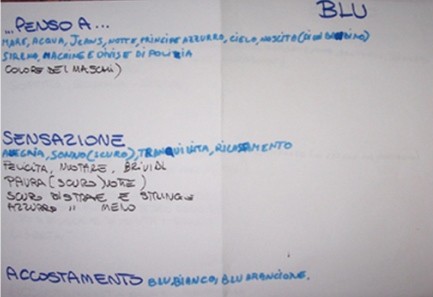 ...PENSO A... BLU
MARE, ACQUA, JEANS, NOTTE, PRINCIPE AZZURRO, CIELO, NASCITA (DI UN BAMBINO)
SIRENO, MACCHINE E DIVISE DI POLIZIA
COLORE DEI MASCHI)
SENSAZIONE
ALLEGRIA, SONNO (SCURO), TRANQUILLITA,
FELICITA, NUOTARE, BRIVIDI
PAURA (SCURO) NOTTE)
SCURO DISTRAE E
AZZURRO " MENO
ACCOSTAMENTO BLU BIANCO, BLU ARANCIONE.